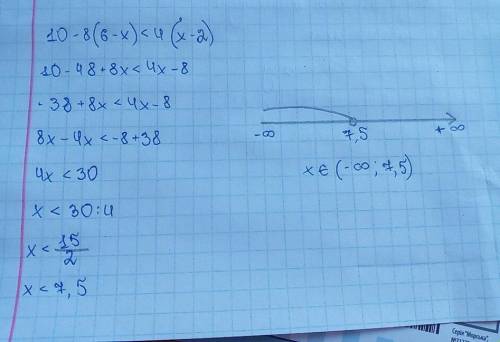 10-8(6-x)<4(x-2)
10-48+8x<4x-8
-38+8x<4x-8
8x-4x<-8+38
4x<30
x<30:4
x<15/2
x<7,5
-∞ 7,5 +∞
x∈(-∞; 7,5)
Серія "Морська".